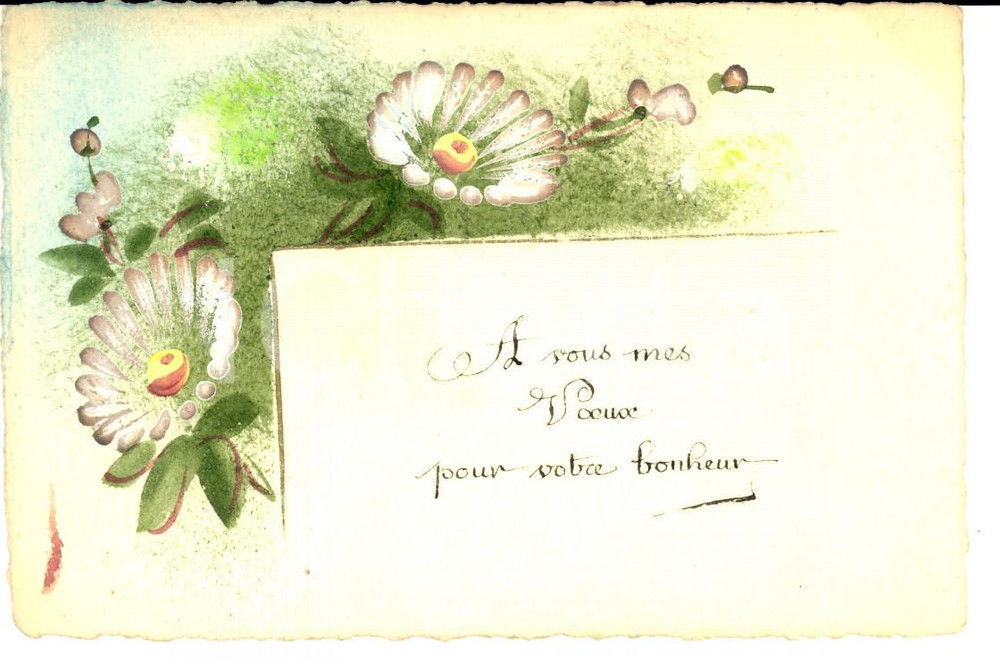 A vous mes
Vœux
pour votre bonheur